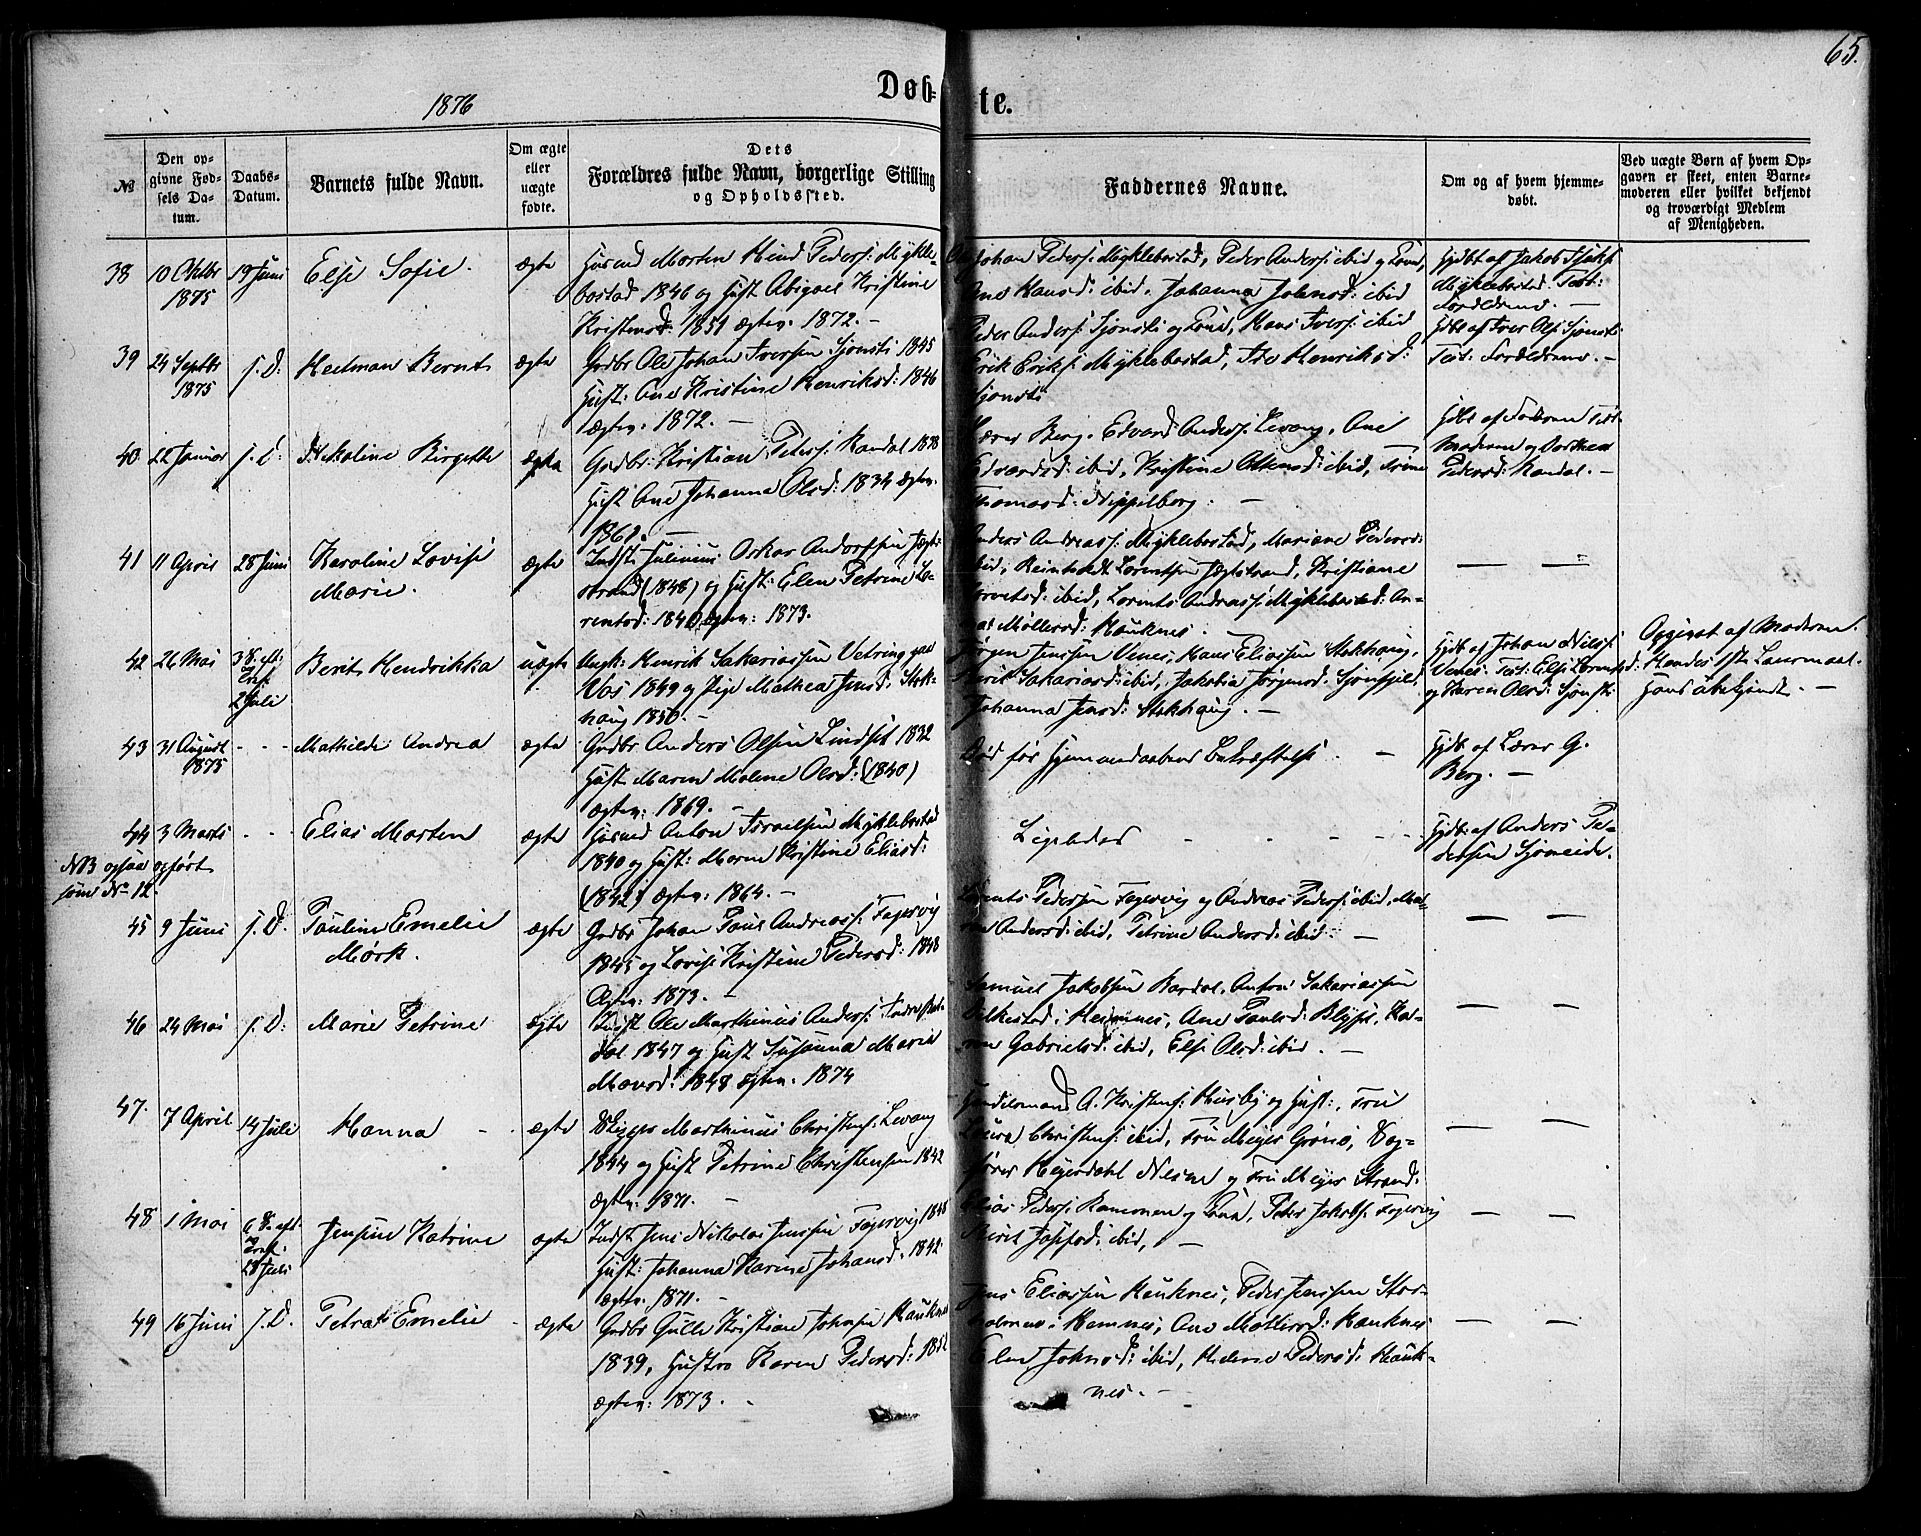 65.
1876
Døb-
te.
№
Den op-
givne Fød-
sels Da-
tum.
Daabs-
Datum.
Barnets fulde Navn.
Om ægte
eller
uægte
fødte.
Dets
Forældres fulde Navn, borgerlige Stilling
og Opholdssted.
Faddernes Navne.
Om og af hvem hjemme-
døbt.
Ved uægte Børn af hvem Op-
gaven er skeet, enten Barne-
moderen eller hvilket bekjendt
og troværdigt Medlem
af Menigheden.
38
10 Oktbr
1875
19 Juni
Else Sofie.
ægte
Husmd Morten Hind Peders: Mykle-
bostad 1846 og Hust Abigael Kristine
Kristensd: 1851 ægtev. 1872. —
Johan Peders: Myklebostad, Peder Anders: ibid og
Ane Hansd: ibid, Johanna Johnsd: ibid
Hjdbt af Jakob
Myklebostad. Test:
Forældrene. —
39
24 Septbr
1875
s. D.
Hedman Bernt
ægte
Grdbr Ole Johan Iversen Sjonsti 1845
Hust: Ane Kristine Henriksd: 1846
ægtev. 1872. —
Peder Anders: Sjonsti og Hans Ivers: ibid
Erik Eriks: Myklebostad, Henriksd:
Sjonsti
Hjdbt af Iver Ols: Sjonsti
Test: Forældrene. —
40
22 Januar
s. D.
Nikoline Birgitte
ægte
Grdbr: Kristian Peters: Randal
Hust Ane Johanna Olsd: 1834 ægtev.
—
Lærer Berg, Edvard Anders: Levang, Ane
Edvardsd: ibid, Kristine ibid, Trine
Thomasd:
Hjdbt af Faderen Test
Moderen og
Pedersd: Randal. —
41
11 April
28 Juni
Karoline Lovise
Marie.
ægte
Indst Julinius Oskar Andorfsen Jægt-
strand (1848) og Hust: Elen Petrine Lo-
rentsd: ægtev: 1873.
Anders Andreass: Myklebostad, Mariane Pedersd:
ibid, Reinholdt Lorentsen Jægtstrand, Kristiane
ibid, Lorents Andreass: Myklebostad: An-
Møllersd: Hauknes. —
— —
42
26 Mai
2 Juli
Berit Hendrikka
uægte
Ungk: Henrik Sakariassen Vetring paa
Vos 1849 og Pige Mathea Jensd: Stok-
haug 1850. —
Jørgen Jenssen Venes, Hans Eliassen Stokhaug,
Berit Sakariasd: ibid, Jakobia Jørgensd: Sjonfjeld
Johanna Jensd: Stokhaug. —
Hjdbt af Johan Niels:
Venes. Test: Else Lorentsd:
og Karen Olsd: Sjonsti
Opgivet af Moderen.
Hendes 1ste Leiermaal.
Hans ubekjendt. —
43
31 August
1875
- - -
Mathilde Andrea
ægte
Grdbr Anders Olsen Lindset 1832
Hust Maren Malene Olsd: (1840)
ægtev: 1869. —
Død før Hjemmedaabens Bekræftelse. —
Hjdbt af Lærer G.
Berg. —
44
3 Marts
- - -
Elias Morten
ægte
Husmd Anton Israelsen Myklebostad
1840 og Hust: Maren Kristine Eliasd:
(1842) ægtev: 1864. —
Ligeledes
Hjdbt: af Anders Pe-
dersen Sjøneide.
NB ogsaa opført
som No 12.
45
9 Juni
s. D.
Pauline Emelie
Mørk.
ægte
Grdbr Johan Paul Andreass: Fagervig
1845 og Lovise Kristine Pedersd: 1848
Ægtev: 1873. —
Lorents Pedersen Fagervig og Andreas Peders: ibid, Ma-
ren Andersd: ibid, Petrine Andersd: ibid. —
— —
46
24 Mai
s. D.
Marie Petrine
ægte
Indst Ole Marthinus Anders: Indre
dal 1847 og Hust Susanna Marie
Monsd: 1848 ægtev. 1874
Samuel Jakobsen Bardal, Anton Sakariassen
i Hemnes, Ane Paulsd: Ka-
ren Gabrielsd: ibid, Else Olsd: ibid. —
— —
47.
7 April
14 Juli
Hanna
ægte
Marthinus Christens: Levang
1844 og Hust Petrine Christensen 1842
ægtev. 1871. —
Handelsmand A. Kristens: Husby og Hust:, Fru
Laura Christens: ibid, Fru Meyer Grønø, Dog-
Heyerdahl Nesne og Fru Meyer Strand.
— —
48
1 Mai
23 Juli
Jensine Katrine
ægte
Indst Jens Nikolai Jenssen Fagervig 1848
Hust: Johanna Karine Johansd. 1842.
ægtev. 1871. —
Elias Peders: Kammen og Peter Jakobs: Fagervig
Berit Josefsd: ibid, —
— —
49
16 Juni
s. D.
Petra Emelie
ægte
Grdbr Gulle Kristian Johnsen Hauknes
1839, Hustro Karen Pedersd: 1852
ægtev: 1873. —
Jens Eliassen Hauknes, Peder Jenssen Stor-
i Hemnes, Ane Møllersd: Hauknes
Elen Johnsd: ibid, Helene Pedersd: Hauk-
nes. —
— —